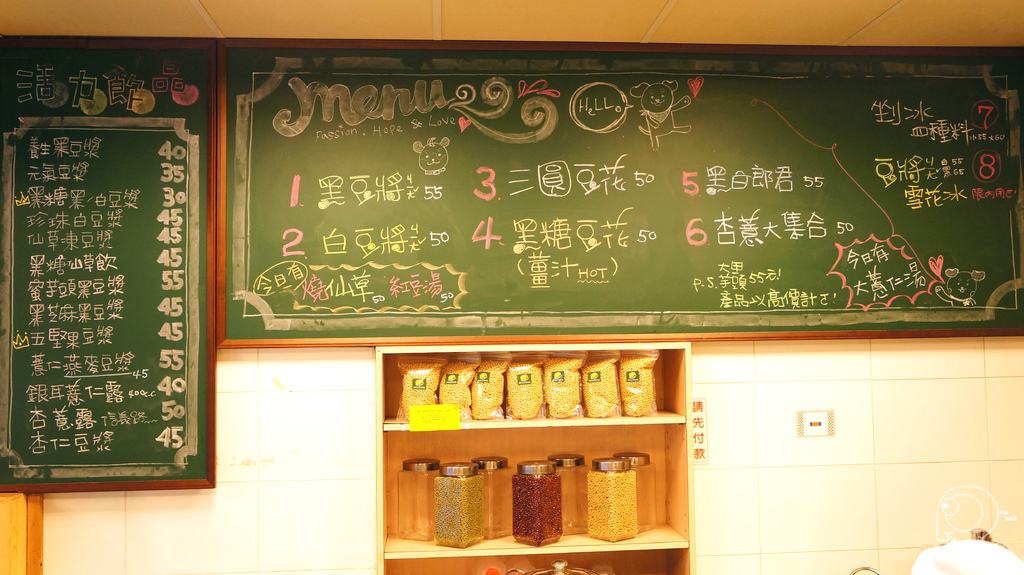 活力飲品
養生黑豆漿 40
元氣豆漿 35
黑糖黑/白豆漿 30
珍珠白豆漿 45
仙草凍豆漿 45
黑糖仙草飲 45
蜜芋頭黑豆漿 55
黑芝麻黑豆漿 45
五堅果豆漿 45
薏仁燕麥豆漿 45 55
銀耳薏仁露 400cc 40
杏薏露 50
杏仁豆漿 45
menu
Passion, Hope & Love
HeLLo
1 黑豆將 55
2 白豆將 50
今日有 燒仙草 50 紅豆湯 50
3 三圓豆花 50
4 黑糖豆花 50
(薑汁HOT)
5 黑白郎君 55
6 杏薏大集合 50
P.S. 芋頭55元!
產品以高價計ㄛ!
剉冰 7
四種料
豆將 白55 黑65 8
雪花冰 限內用ㄛ!
今日有
大薏仁湯
請先付款